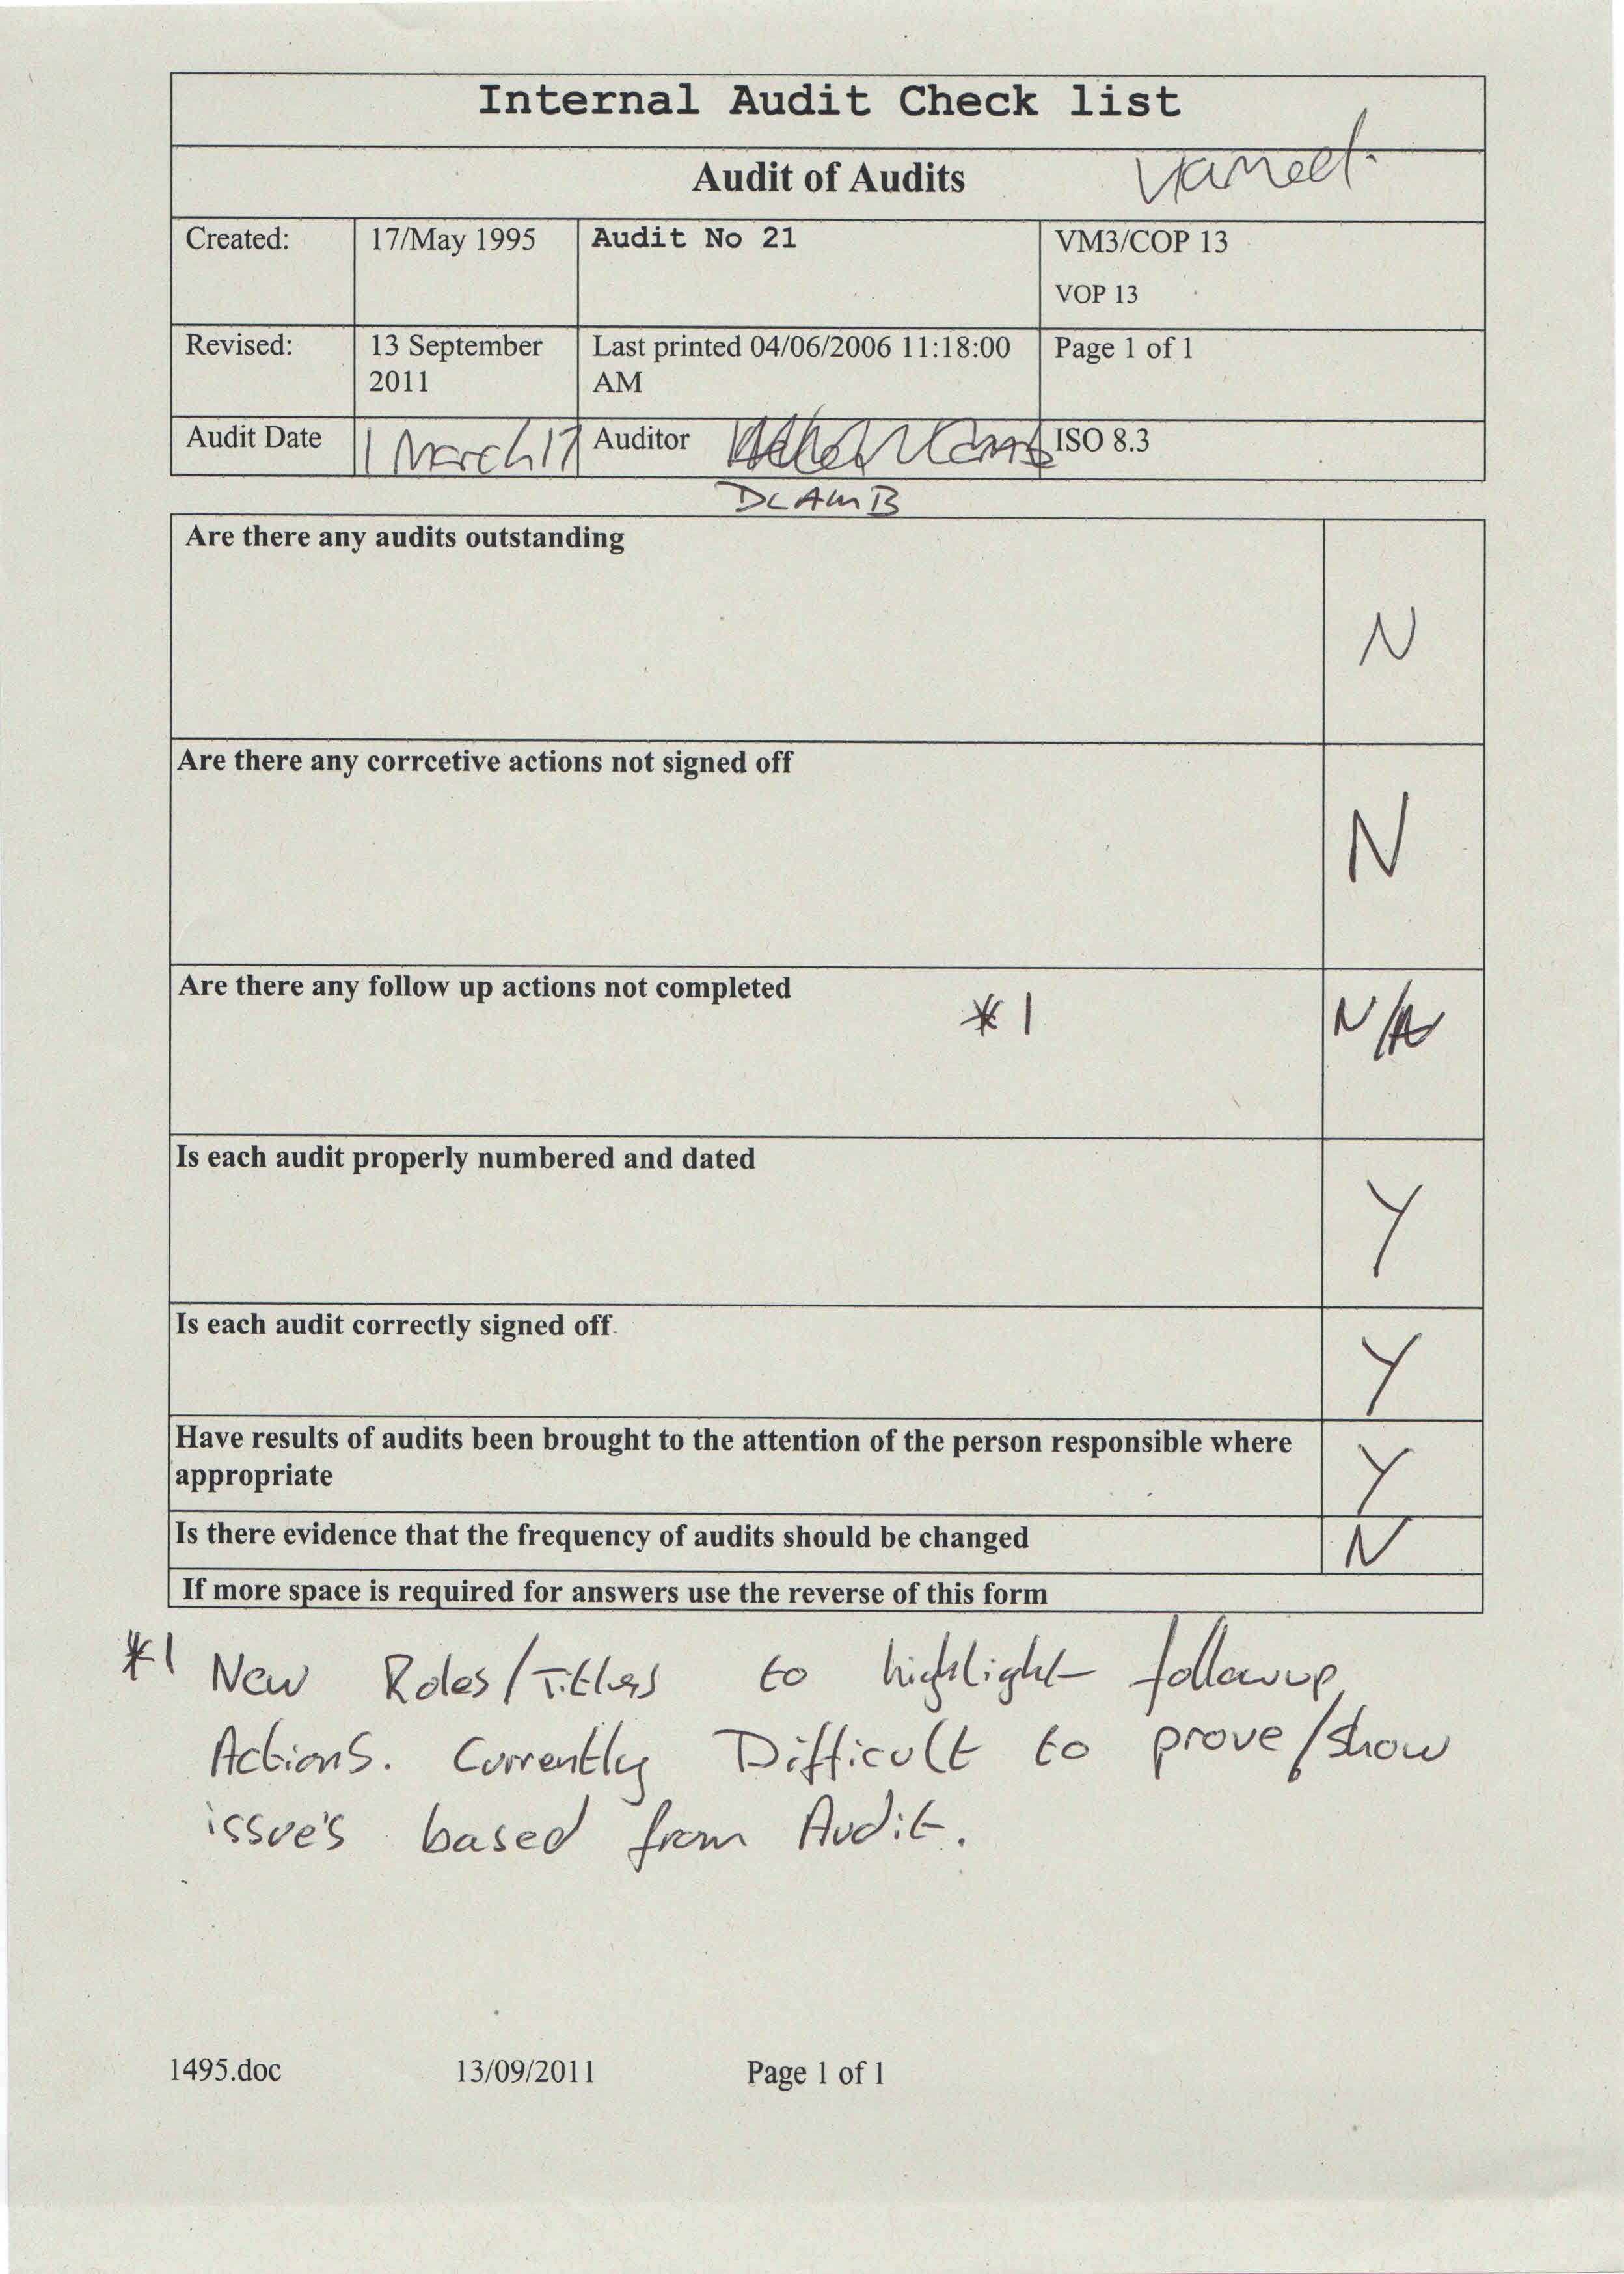 Internal Audit Check list
Audit of Audits
Created: 17/May 1995 Audit No 21 VM3/COP 13
VOP 13
Revised: 13 September Last printed 04/06/2006 11:18:00 Page 1 of 1
2011 AM
Audit Date 1 March 17 Auditor ISO 8.3
DLAMB
Are there any audits outstanding
N
Are there any corrcetive actions not signed off
N
Are there any follow up actions not completed
*1 N/A
Is each audit properly numbered and dated
Y
Is each audit correctly signed off
Y
Have results of audits been brought to the attention of the person responsible where
appropriate Y
Is there evidence that the frequency of audits should be changed N
If more space is required for answers use the reverse of this form
*1 New Roles/Titles to highlight followup
Actions. Currently Difficult to prove/show
issue's based from Audit.
1495.doc 13/09/2011 Page 1 of 1